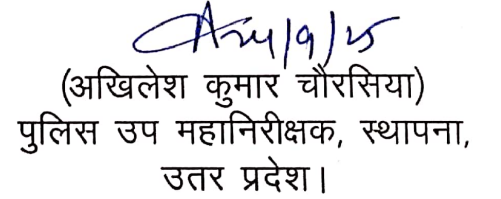 (अखिलेश कुमार चौरसिया)
पुलिस उप महानिरीक्षक, स्थापना,
उतर प्रदेश।